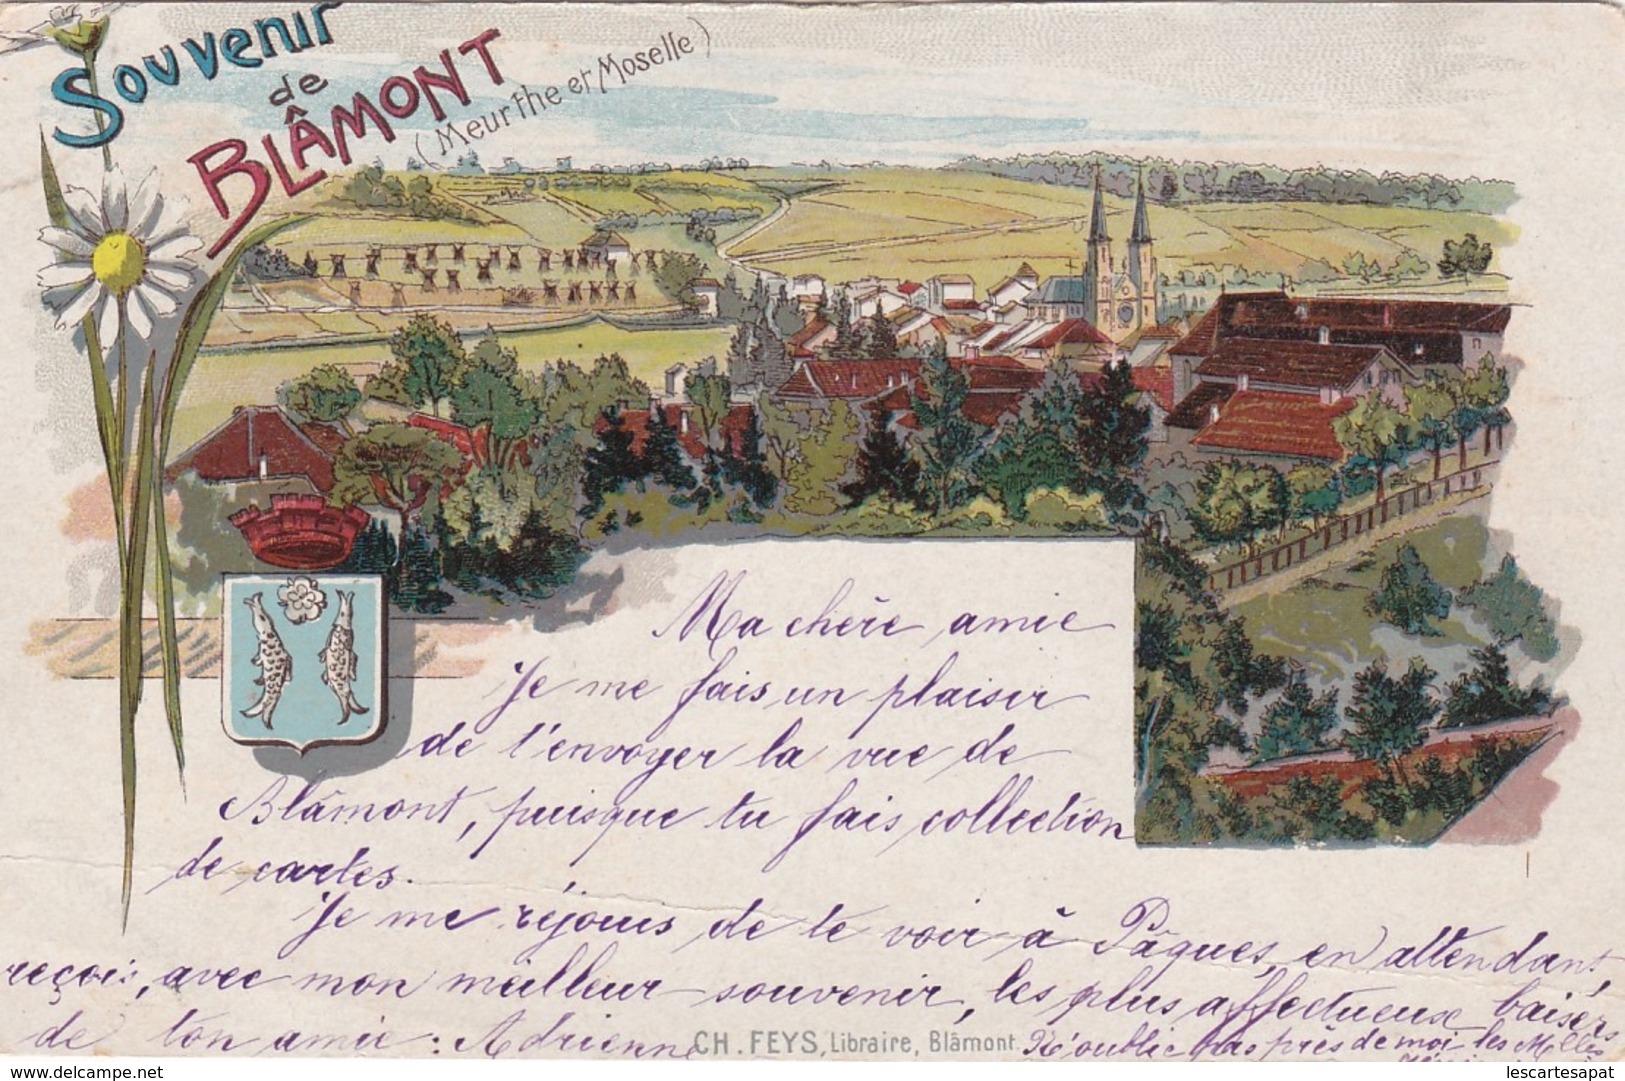 Souvenir
de
BLÂMONT
(Meurthe et Moselle)
Ma chère amie
Je me fais un plaisir
de t'envoyer la vue de
Blâmont, puisque tu fais collection
de cartes.
Je me réjouis de te voir à Pâques, en attendant,
reçois, avec mon meilleur souvenir, les plus affectueux baisers
de ton amie : Adrienne
CH. FEYS, Libraire, Blâmont.
N'oublie pas près de moi les Melles
delcampe.net
lescartesapat